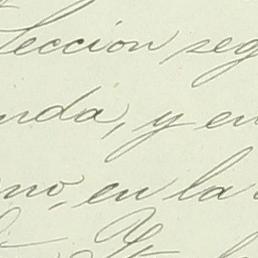 Seccion seg
nda, y en
no, en la